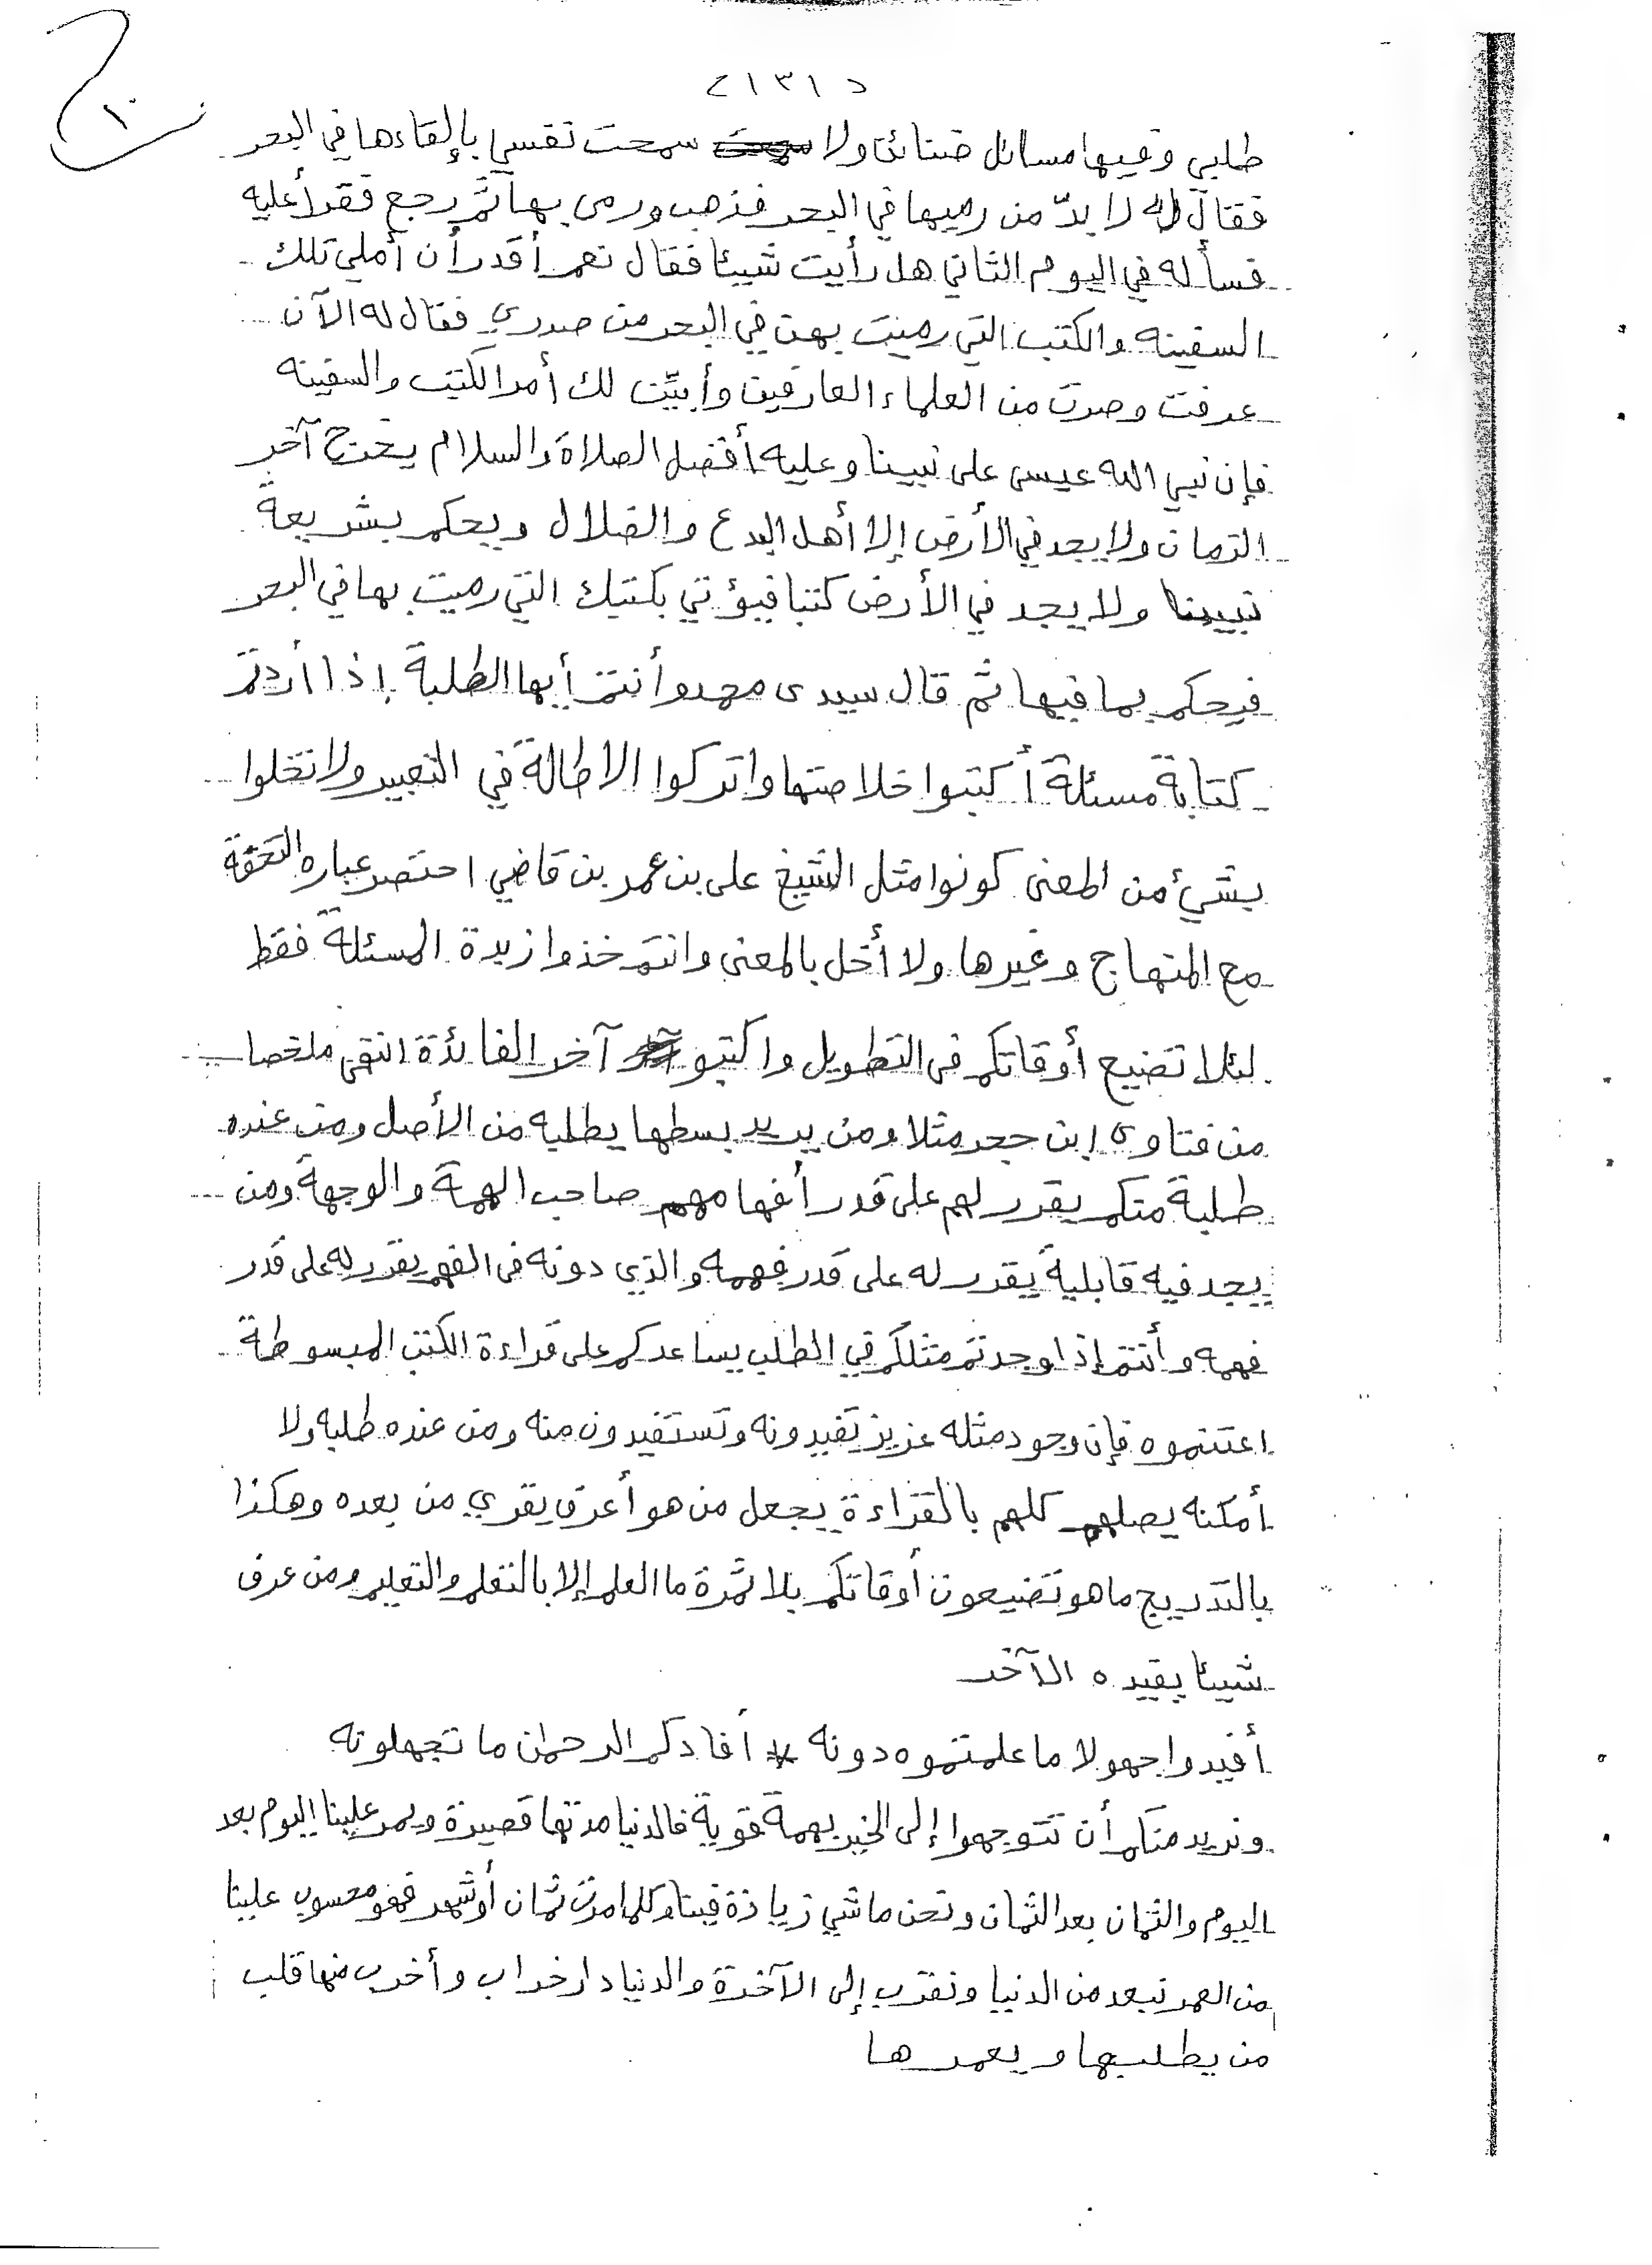 (١٣١)
١٠
طلبي وفيها مسائل ضنائن ولا سمحت نفسي بإلقاءها في البحر
فقال له لا بدّ من رميها في البحر فذهب ورمى بها ثم رجع فقرأ عليه
فسأله في اليوم الثاني هل رأيت شيئا فقال نعم أقدر أن أملي تلك
السفينه والكتب التي رميت بهن في البحر من صدري فقال له الآن
عرفت وصرت من العلماء العارفين وأبيّن لك أمر الكتب والسفينه
فإن نبي الله عيسى على نبينا وعليه أفضل الصلاة والسلام يخرج آخر
الزمان ولا يجد في الأرض إلا أهل البدع والضلال ويحكم بشريعة
نبينا ولا يجد في الأرض كتبا فيؤتي بكتبك التي رميت بها في البحر
فيحكم بما فيها ثم قال سيدى محمد وأنتم أيها الطلبة إذا أردتم
كتابة مسئلة أكتبوا خلاصتها واتركوا الاطالة في التعبير ولا تخلوا
بشيء من المعنى كونوا مثل الشيخ علي بن عمر بن قاضي احتصر عباره التحفة
مع المنهاج وغيرها ولا أخل بالمعنى وانتم خذوا زبدة المسئلة فقط
لئلا تضيع أوقاتكم فى التطويل واكتبو آخر الفائدة انتهى ملخصا
من فتاوى ابن حجر مثلا ومن يريد بسطها يطلبه من الأصل ومن عنده
طلبة منكم يقرر لهم على قدر أفهامهم صاحب الهمة والوجهة ومن
يجد فيه قابلية يقرر له على قدر فهمه والذي دونه فى الفهم يقرر له على قدر
فهمه وأنتم إذا وجدتم مثلكم في الطلب يساعدكم على قراءة الكتب المبسوطة
اغتنموه فإن وجود مثله عزيز تفيدونه وتستفيدون منه ومن عنده طلبه ولا
أمكنه يصلهم كلهم بالقراءة يجعل من هو أعرف يقري من بعده وهكذا
بالتدريج ما هو تضيعون أوقاتكم بلا ثمرة ما العلم إلا بالتعلم والتعليم ومن عرف
شيئا يفيده الآخر
أفيدوا جهولا ما علمتموه دونه * أفادكم الرحمان ما تجهلونه
ونريد منكم أن تتوجهوا إلى الخير بهمة قوية فالدنيا مدتها قصيرة ويمر علينا اليوم بعد
اليوم والثمان بعد الثمان ونحن ماشي زيادة فينا وكلما مرت ثمان أو شهر فهو محسوب علينا
من العمر نبعد من الدنيا ونقرب إلى الآخرة والدنيا دار خراب وأخرب منها قلب
من يطلبها ويعمرها